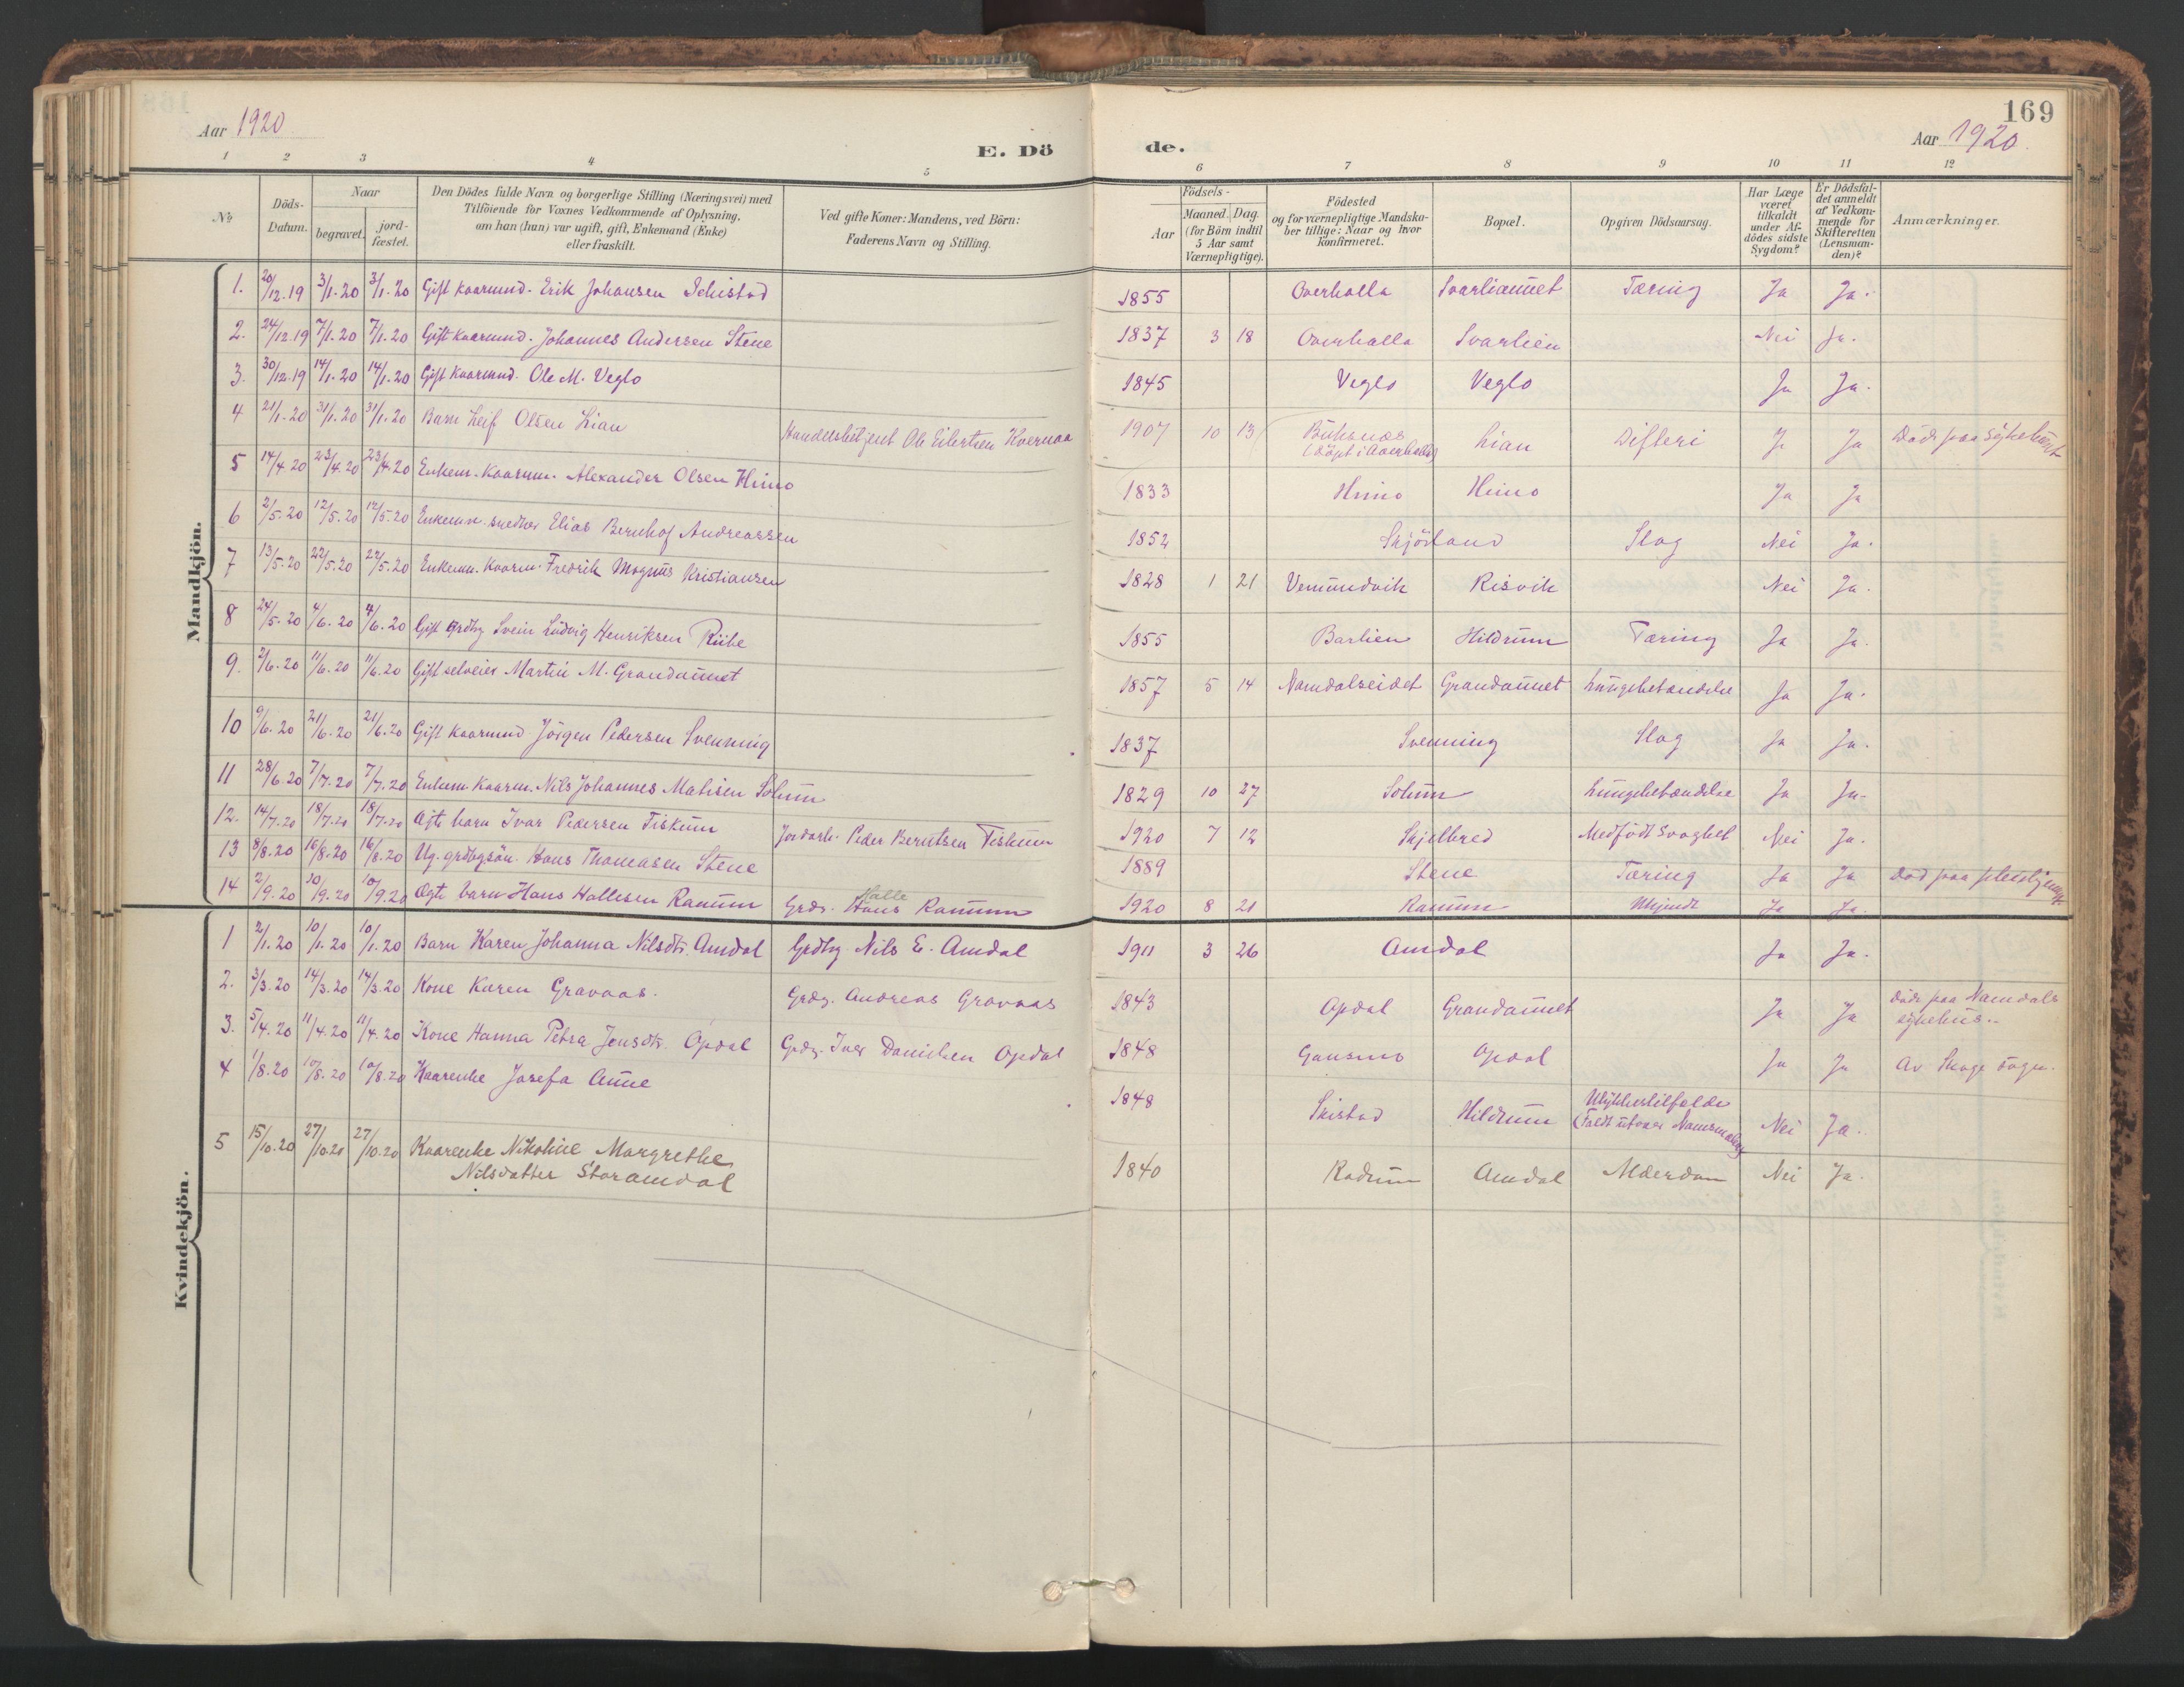 169
Aar 1920
E. Dö
de.
Aar 1920.
1 2 3 4 5 6 7 8 9 10 11 12
No
Döds-Datum.
Naar
begravet.
jord-fæstet.
Den Dödes fulde Navn og borgerlige Stilling (Næringsvei) med
Tilföiende for Voxnes Vedkommende af Oplysning,
om han (hun) var ugift, gift, Enkemand (Enke)
eller fraskilt.
Ved gifte Koner: Mandens, ved Börn:
Faderens Navn og Stilling.
Födsels-
Aar
Maaned. Dag.
(for Börn indtil
5 Aar samt
Værnepligtige).
Födested
og for værnepligtige Mandska-
ber tillige: Naar og hvor
konfirmeret.
Bopæl.
Opgiven Dödsaarsag.
Har Læge
været
tilkaldt
under Af-
dödes sidste
Sygdom?
Er Dödsfal-
det anmeldt
af Vedkom-
mende for
Skifteretten
(Lensman-
den)?
Anmærkninger.
Mandkjön.
1. 20/12.19 3/1.20 3/1.20 Gift kaarmand. Erik Johansen Sehistad 1855 Overhalla Svarliaunet Tæring Ja Ja.
2. 24/12.19 7/1.20 7/1.20 Gift kaarmand. Johannes Andersen Stene 1837 3 18 Overhalla Svarlien Nei Ja.
3. 30/12.19 14/1.20 14/1.20 Gift kaarmand. Ole M. Veglo 1845 Veglo Veglo Ja Ja.
4 21/1.20 31/1.20 31/1.20 Barn Leif Olsen Lian Handelsbetjent Ole Eilertsen Kvernaa 1907 10 13 Buksnæs (Döpt i Overhalla) Lian Difteri Ja Ja Död paa sykehuset
5 14/4.20 23/4.20 23/4.20 Enkem. Kaarm. Alexander Olsen Himo 1833 Himo Himo Ja Ja
6 2/5.20 12/5.20 12/5.20 Enkem. snedker Elias Bernhof Andreassen 1852 Skjörland Slag Nei Ja.
7 13/5.20 22/5.20 22/5.20 Enkem. Kaarm. Fredrik Magnus Kristiansen 1828 1 21 Vemundvik Risvik Nei Ja.
8 24/5.20 4/6.20 4/6.20 Gift grdbg Svein Ludvig Henriksen Rübe 1855 Barlien Hildrum Tæring Ja Ja.
9. 2/6.20 11/6.20 11/6.20 Gift selveier Martin M. Grandaunet 1857 5 14 Namdalseidet Grandaunet Lungebetændelse Ja Ja.
10 9/6.20 21/6.20 21/6.20 Gift kaarmand Jörgen Pedersen Svenning 1837 Svenning Slag Ja Ja.
11 28/6.20 7/7.20 7/7.20 Enkem Kaarm. Nils Johannes Matisen Solum 1829 10 27 Solum Lungebetændelse Ja Ja.
12. 14/7.20 18/7.20 18/7.20 Ægte barn Ivar Pedersen Fiskum Jordarb. Peder Berntsen Fiskum 1920 7 12 Skjelbred Medfödt svaghet Nei Ja.
13 8/8.20 16/8.20 16/8.20 Ug. grdbgsön. Hans Thomasen Stene 1889 Stene Tæring Ja Ja Död paa pleiehjemmet
14 2/9.20 10/9.20 10/9.20 Ægte barn Hans Hallesen Ranum Grdr. Halle Hans Ranum 1920 8 21 Ranum Ukjendt Ja Ja.
Kvindekjön.
1 2/1.20 10/1.20 10/1.20 Barn Karen Johanna Nilsdtr. Amdal Grdbg. Nils E. Amdal 1911 3 26 Amdal Ja Ja.
2. 3/3.20 14/3.20 14/3.20 Kone Karen Gravaas. Grdg. Andreas Gravaas 1843 Opdal Grandaunet Ja Ja Död paa Namdals sykehus.
3. 5/4.20 11/4.20 11/4.20 Kone Hanna Petra Jonsdtr. Opdal Grdg. Iver Danielsen Opdal 1848 Gansmo Opdal Ja Ja Av Skage sogn.
4 1/8.20 10/8.20 10/8.20 Kaarenke Josefa Aune 1848 Seistad Hildrum Ulykkestilfælde (Faldt utover Nei Ja.
5 15/10.20 27/10.20 27/10.20 Kaarenke Nikoline Margrethe
Nilsdatter Storamdal 1840 Rodum Amdal Alderdom Nei Ja.